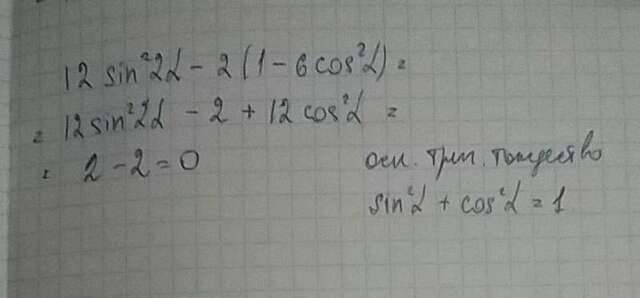 12 sin²2α - 2(1 - 6cos²α) =
= 12sin²2α - 2 + 12cos²α =
= 2 - 2 = 0
осн. триг. тождество
sin²α + cos²α = 1